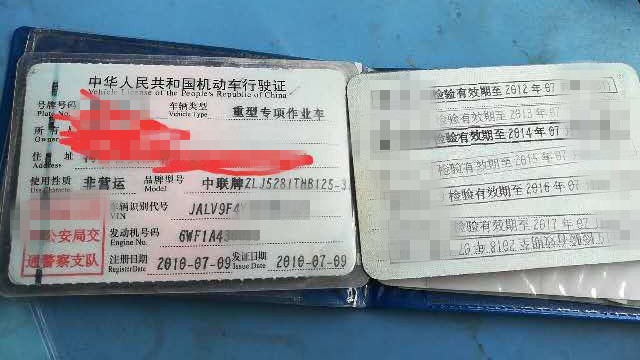 中华人民共和国机动车行驶证
Vehicle License of the People's Republic of China
号牌号码
Plate No.
车辆类型
Vehicle Type
重型专项作业车
所
Owner
住 址
Address
使用性质
Use Character
非营运
品牌型号
Model
中联牌ZLJ5281THB125-3
车辆识别代号
VIN
JALV9F4
发动机号码
Engine No.
6WF1A43
公安局交
通警察支队
注册日期
Register Date
2010-07-09
发证日期
Issue Date
2010-07-09
检验有效期至 2012 年 07
检验有效期至 2013 年 07
检验有效期至 2014 年 07
检验有效期至 2015 年 07
检验有效期至 2016 年 07
检验有效期至 2017 年 07
检验有效期至 2018 年 07